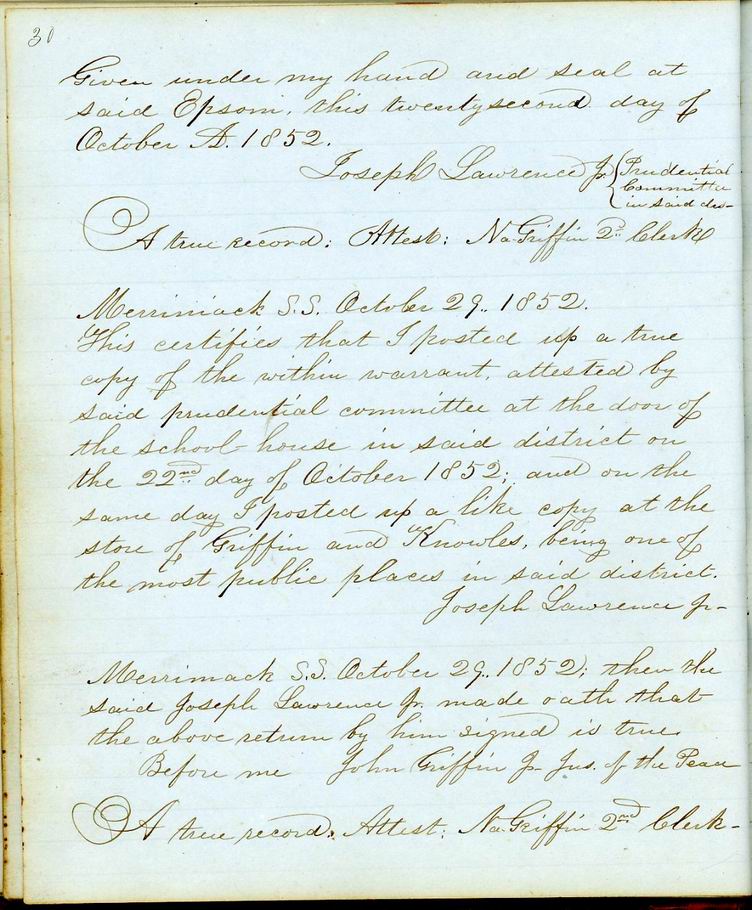 30
Given under my hand and seal at
said Epsom, this twenty second day of
October A. 1852.
Joseph Lawrence Jr. { Prudential
Committee
in said dis-
A true record: Attest: Na Griffin 2d Clerk
Merrimack S.S. October 29.. 1852.
This certifies that I posted up a true
copy of the within warrant, attested by
said prudential committee at the door of
the school-house in said district on
the 22nd day of October 1852; and on the
same day I posted up a like copy at the
store of Griffin and Knowles, being one of
the most public places in said district.
Joseph Lawrence Jr-
Merrimack S.S. October 29.. 1852; then the
said Joseph Lawrence Jr. made oath that
the above return by him signed is true.
Before me John Griffin Jr- Jus. of the Peace
A true record. Attest: Na Griffin 2nd Clerk-